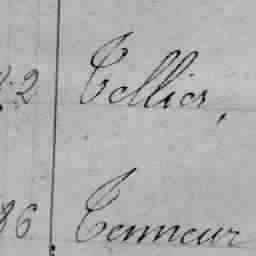 2 Tellier,
86 Tenneur